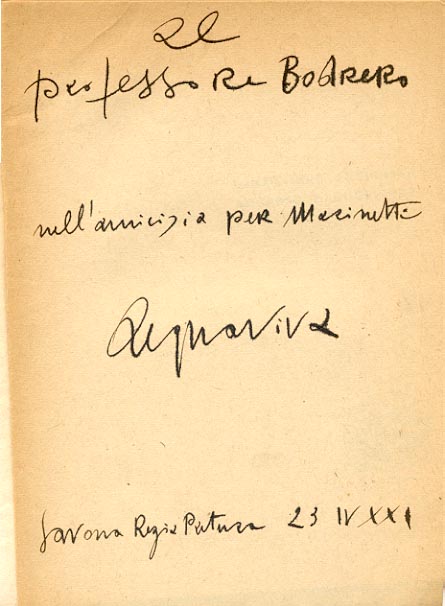 al
professore Bodrero
nell'amicizia per Marinetti
Acquaviva
Savona Regia Questura 23 IV XXI